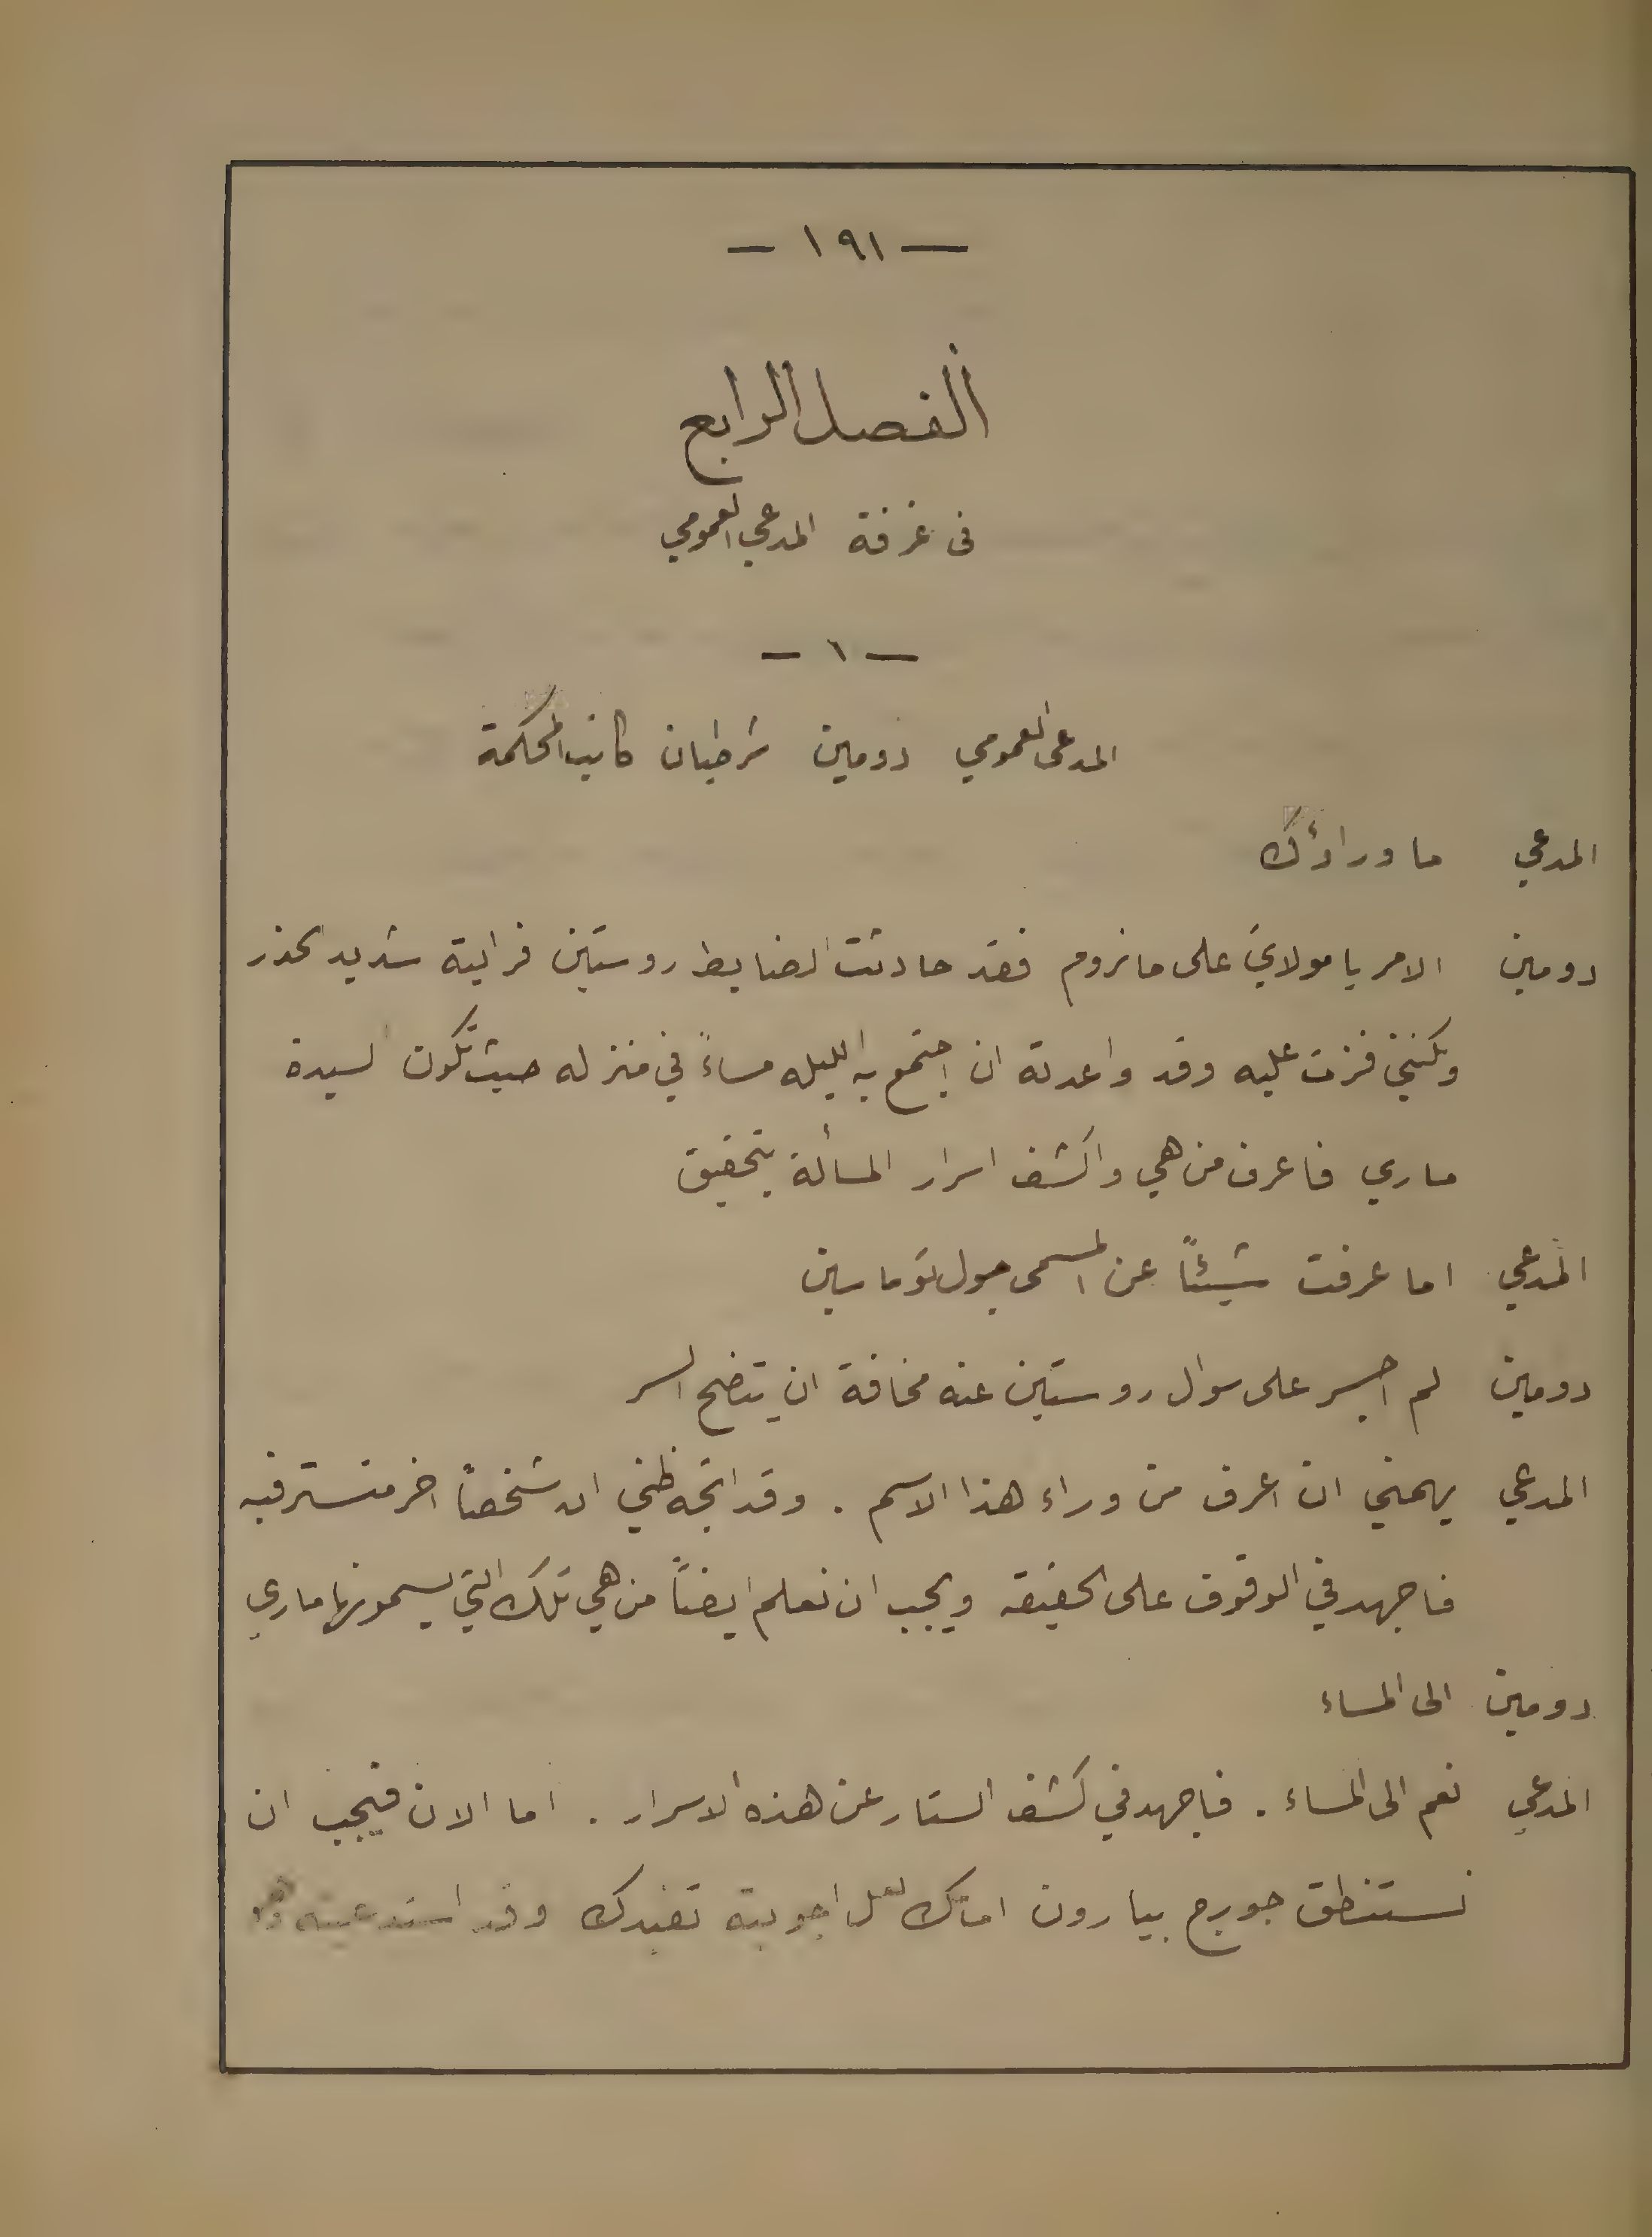 — ١٩١ —
الفصل الرابع
فى غرفة المدعي العمومي
— ١ —
المدعى العمومي دومين شرطيان كاتب المحكمة
المدعي ما وراؤك
دومين الامر يا مولاي على ما نروم فقد حادثت الضابط روستين فرايته شديد الحذر
ولكنني فزت عليه وقد واعدته ان اجتمع به الليله مساءً في منزله حيث تكون السيدة
ماري فاعرف من هي واكشف اسرار المسألة بتحقيق
المدعي اما عرفت شيئاً عن المسمى جول توماسين
دومين لم اجسر على سوال روستين عنه مخافة ان يتضح السر
المدعي يهمني ان اعرف من وراء هذا الاسم . وقد اتجه ظني ان شخصاً اخر متستر فيه
فاجهد في الوقوف على الحقيقه ويجب ان نعلم ايضاً من هي تلك التي يسمونها ماري
دومين الى المساء
المدعي نعم الى المساء . فاجهد في كشف الستار عن هذه الاسرار . اما الان فيجب ان
نستنطق جورج بيارون امامك لعل اجوبته تفيدك وقد استدعيته